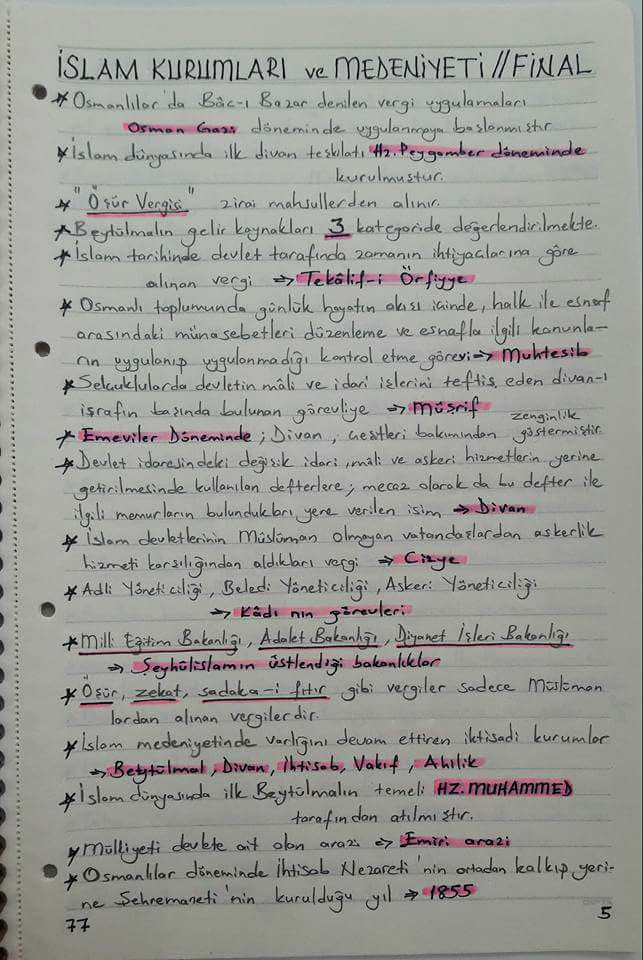 İSLAM KURUMLARI ve MEDENİYETİ // FİNAL
* Osmanlılar'da Bâc-ı Bazar denilen vergi uygulamaları
Osman Gazi döneminde uygulanmaya başlanmıştır
* İslam dünyasında ilk divan teşkilatı Hz. Peygamber döneminde
kurulmuştur.
* "Öşür Vergisi" zirai mahsullerden alınır.
* Beytülmalın gelir kaynakları 3 kategoride değerlendirilmekte.
* İslam tarihinde devlet tarafında zamanın ihtiyaclarına göre
alınan vergi => Tekâlif-i Örfiyye
* Osmanlı toplumunda günlük hayatın akısı icinde, halk ile esnaf
arasındaki münasebetleri düzenleme ve esnafla ilgili kanunla-
rın uygulanıp uygulanmadığı kontrol etme görevi => Muhtesib
* Selcuklularda devletin mâli ve idari islerini teftis eden divan-ı
işrafın basında bulunan görevliye => Müşrif
* Emeviler Döneminde; Divan, cesitleri bakımından zenginlik göstermistir.
* Devlet idaresindeki değisik idari, mâli ve askeri hizmetlerin yerine
getirilmesinde kullanılan defterlere; mecaz olarak da bu defter ile
ilgili memurların bulundukları yere verilen isim => Divan
* İslam devletlerinin Müslüman olmayan vatandaslardan askerlik
hizmeti karsılığından aldıkları vergi => Cizye
* Adli Yöneticiliği, Beledi Yöneticiliği, Askeri Yöneticiliği
=> Kâdı'nın görevleri
* Milli Eğitim Bakanlığı, Adalet Bakanlığı, Diyanet İşleri Bakanlığı
=> Şeyhülislamın üstlendiği bakanlıklar
* Öşür, zekat, sadaka-i fıtır gibi vergiler sadece Müslüman
lardan alınan vergilerdir.
* İslam medeniyetinde varlığını devam ettiren iktisadi kurumlar
=> Beytülmal, Divan, İhtisab, Vakıf, Ahilik
* İslam dünyasında ilk Beytülmalın temeli HZ. MUHAMMED
tarafından atılmıstır.
* Mülkiyeti devlete ait olan arazi => Emiri arazi
* Osmanlılar döneminde İhtisab Nezareti'nin ortadan kalkıp yeri-
ne Şehremaneti'nin kurulduğu yıl => 1855
77
5